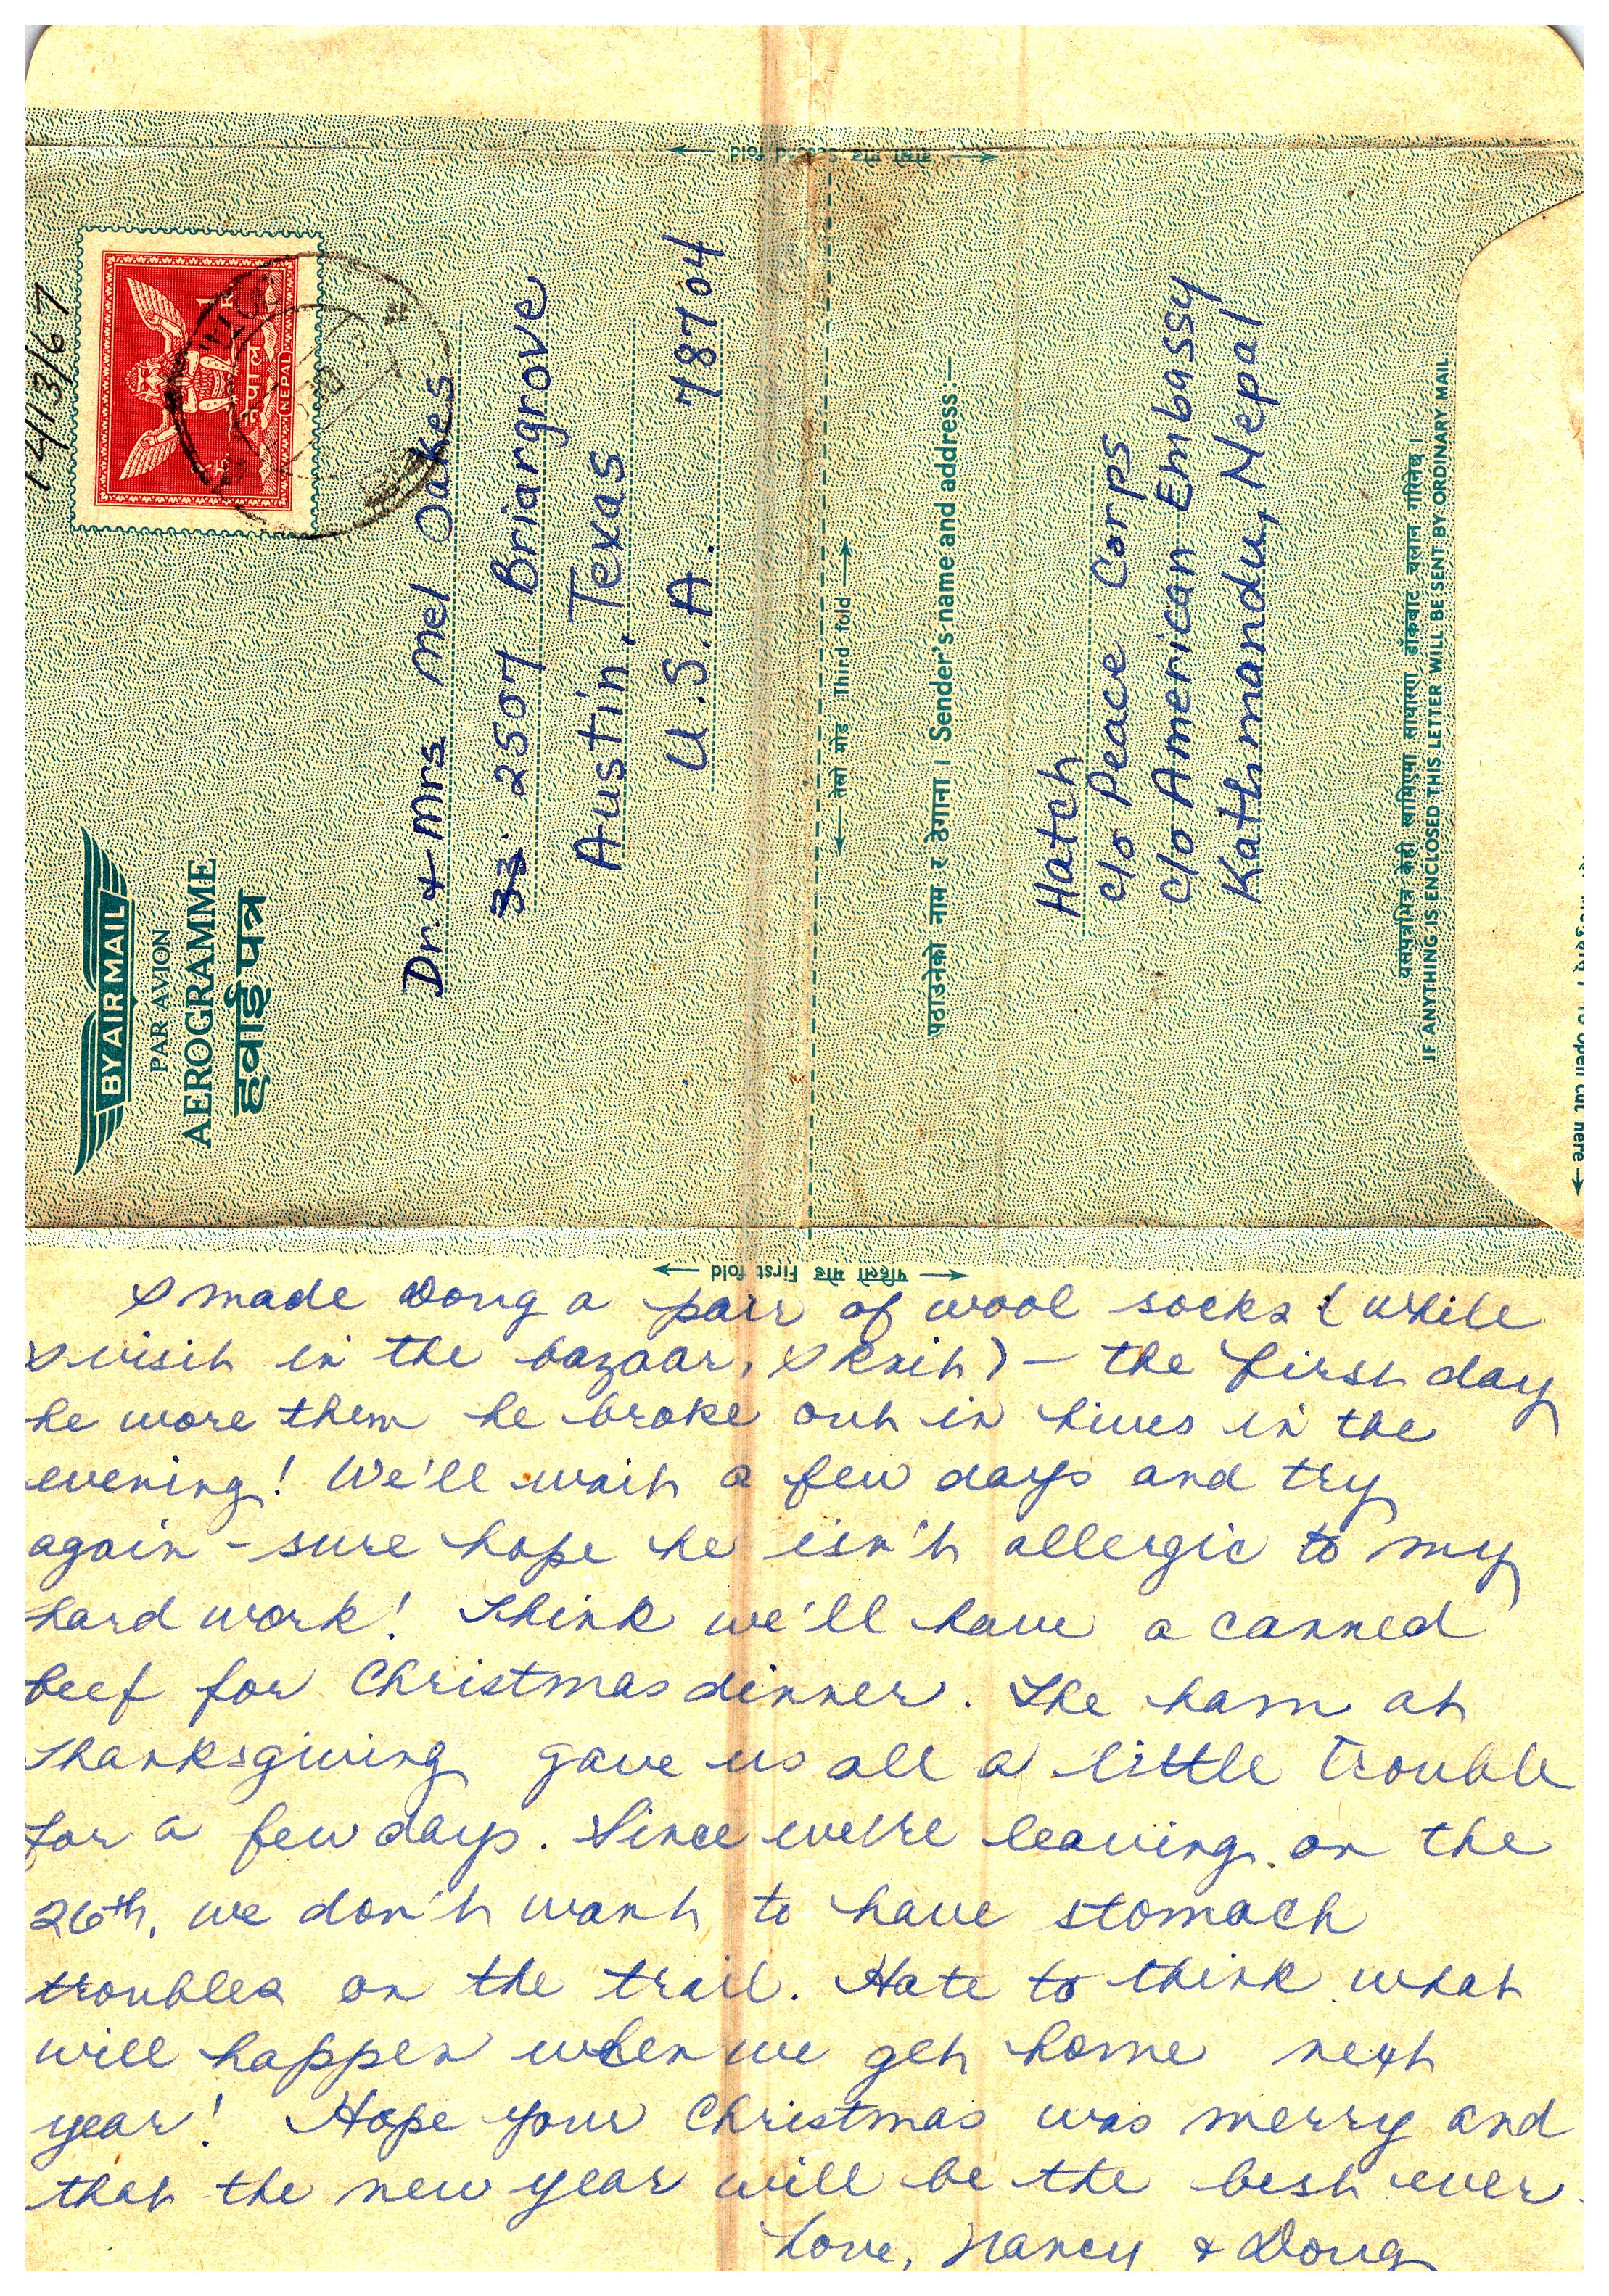 14/13/67
1 R
नेपाल
NEPAL
BY AIR MAIL
PAR AVION
AEROGRAMME
हवाई पत्र
Dr. & Mrs Mel Oakes
33. 2507 Briargrove
Austin, Texas
U.S.A. 78704
दोस्रो मोड Second fold
तेस्रो मोड Third fold
पठाउनेको नाम र ठेगाना । Sender's name and address:—
Hatch
c/o Peace Corps
c/o American Embassy
Kathmandu, Nepal
यसपत्रभित्र केही खामिएमा साधारण डाँकबाट चलान गरिनेछ ।
IF ANYTHING IS ENCLOSED THIS LETTER WILL BE SENT BY ORDINARY MAIL
To open cut here
पहिलो मोड First fold
I made Doug a pair of wool socks (while
I visit in the bazaar, I knit) — the first day
he wore them he broke out in hives in the
evening! We'll wait a few days and try
again - sure hope he isn't allergic to my
hard work! Think we'll have a canned
beef for Christmas dinner. The ham at
Thanksgiving gave us all a little trouble
for a few days. Since we're leaving on the
26th, we don't want to have stomach
troubles on the trail. Hate to think what
will happen when we get home next
year! Hope your Christmas was merry and
that the new year will be the best ever.
Love, Nancy & Doug